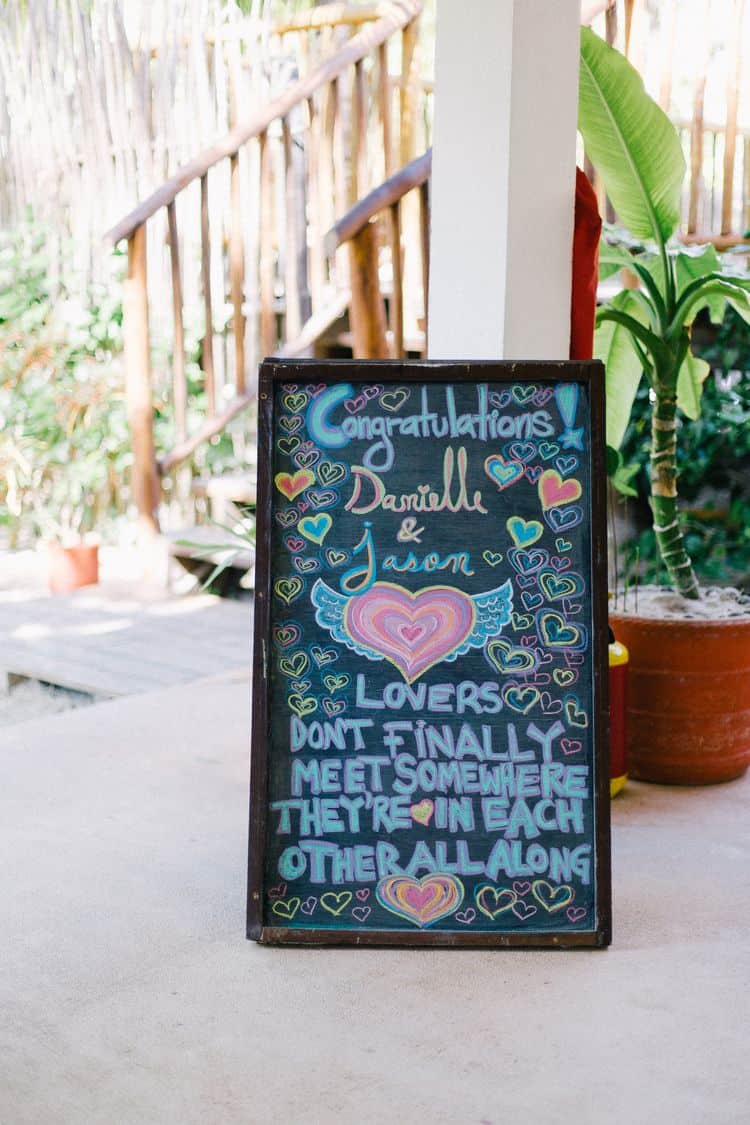 Congratulations!
Danielle
&
Jason
LOVERS
DON'T FINALLY
MEET SOMEWHERE
THEY'RE IN EACH
OTHER ALL ALONG